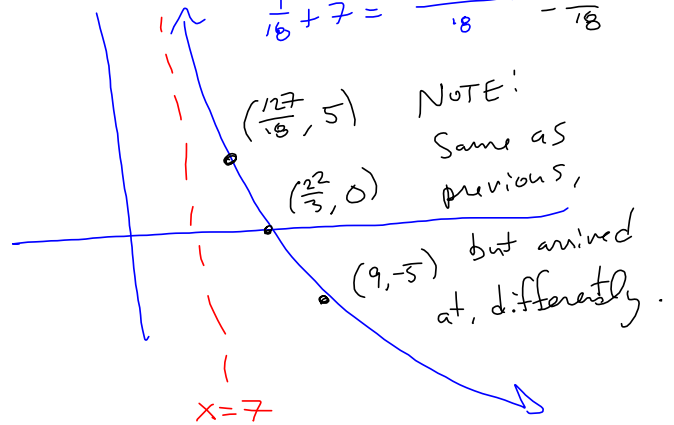 1/18 + 7 = /18 - /18
(127/18, 5)
NOTE:
Same as
previous,
(22/3, 0)
but arrived
(9, -5)
at, differently.
x=7